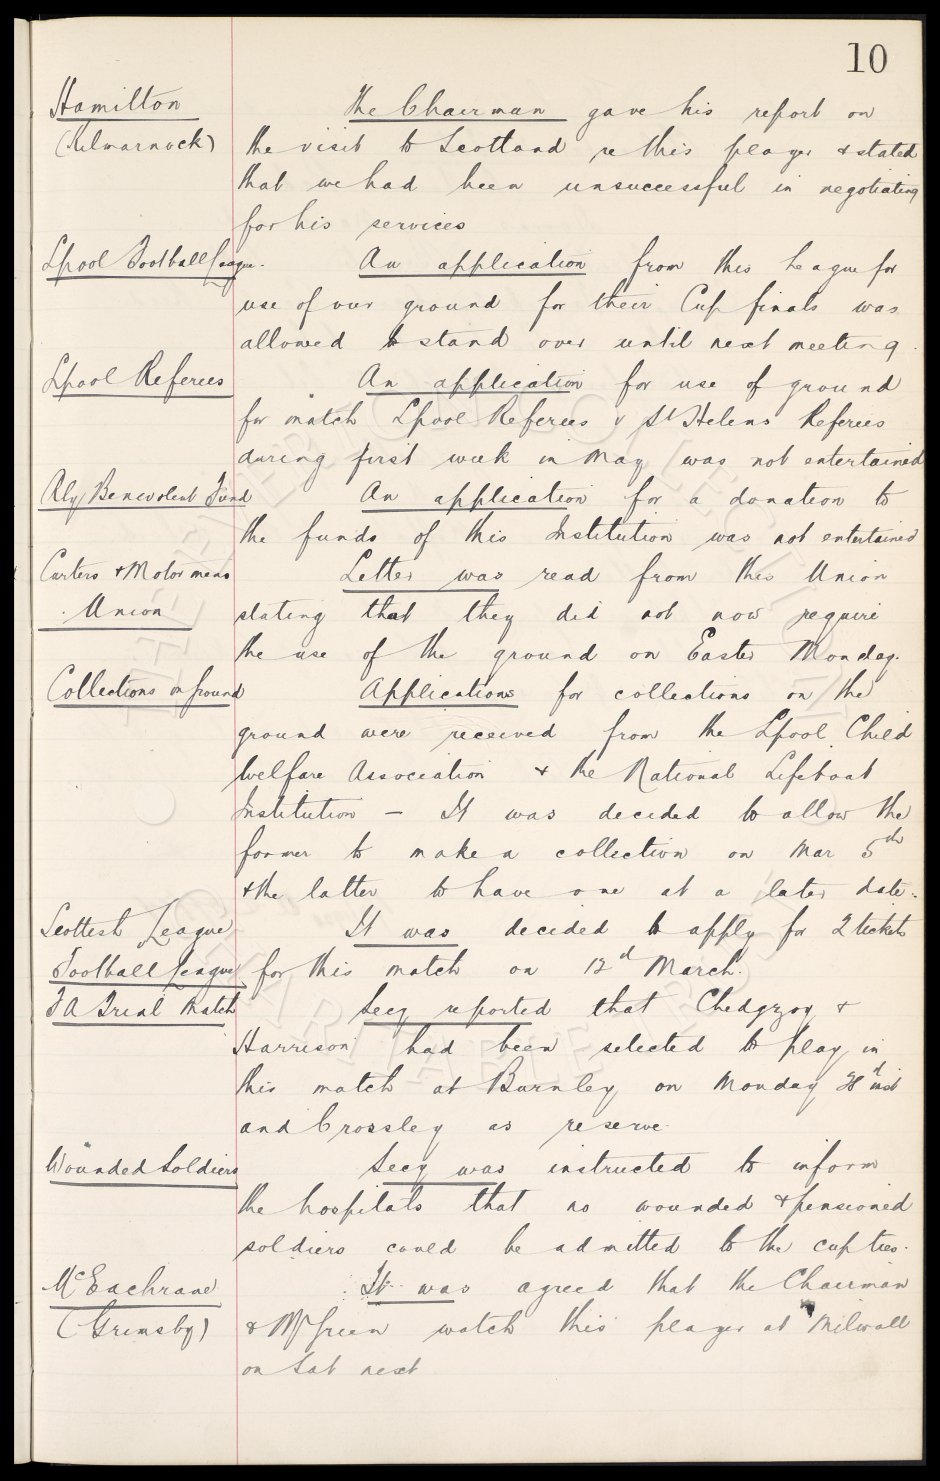 10
Hamilton The Chairman gave his report on
(Kilmarnock) the visit to Scotland re this player & stated
that we had been unsuccessful in negotiating
for his services
Lpool Football League. An application from this League for
use of our ground for their Cup finals was
allowed to stand over until next meeting.
Lpool Referees An application for use of ground
for match Lpool Referees v St Helens Referees
during first week in May was not entertained
Rly Benevolent Fund An application for a donation to
the funds of this Institution was not entertained
Carters & Motor mens Letter was read from this Union
Union stating that they did not now require
the use of the ground on Easter Monday.
Collections on ground Applications for collections on the
ground were received from the Lpool Child
Welfare Association & the National Lifeboat
Institution – It was decided to allow the
former to make a collection on Mar 5th
& the latter to have one at a later date.
Scottish League It was decided to apply for 2 tickets
Football League for this match on 12d March.
F A Trial Match Secy reported that Chedgzoy &
Harrison had been selected to play in
this match at Burnley on Monday inst
and Crossley as reserve.
Wounded Soldiers Secy was instructed to inform
the hospitals that no wounded & pensioned
soldiers could be admitted to the cup ties.
McEachrane It was agreed that the Chairman
(Grimsby) & Mr Green watch this player at Milwall
on Sat next